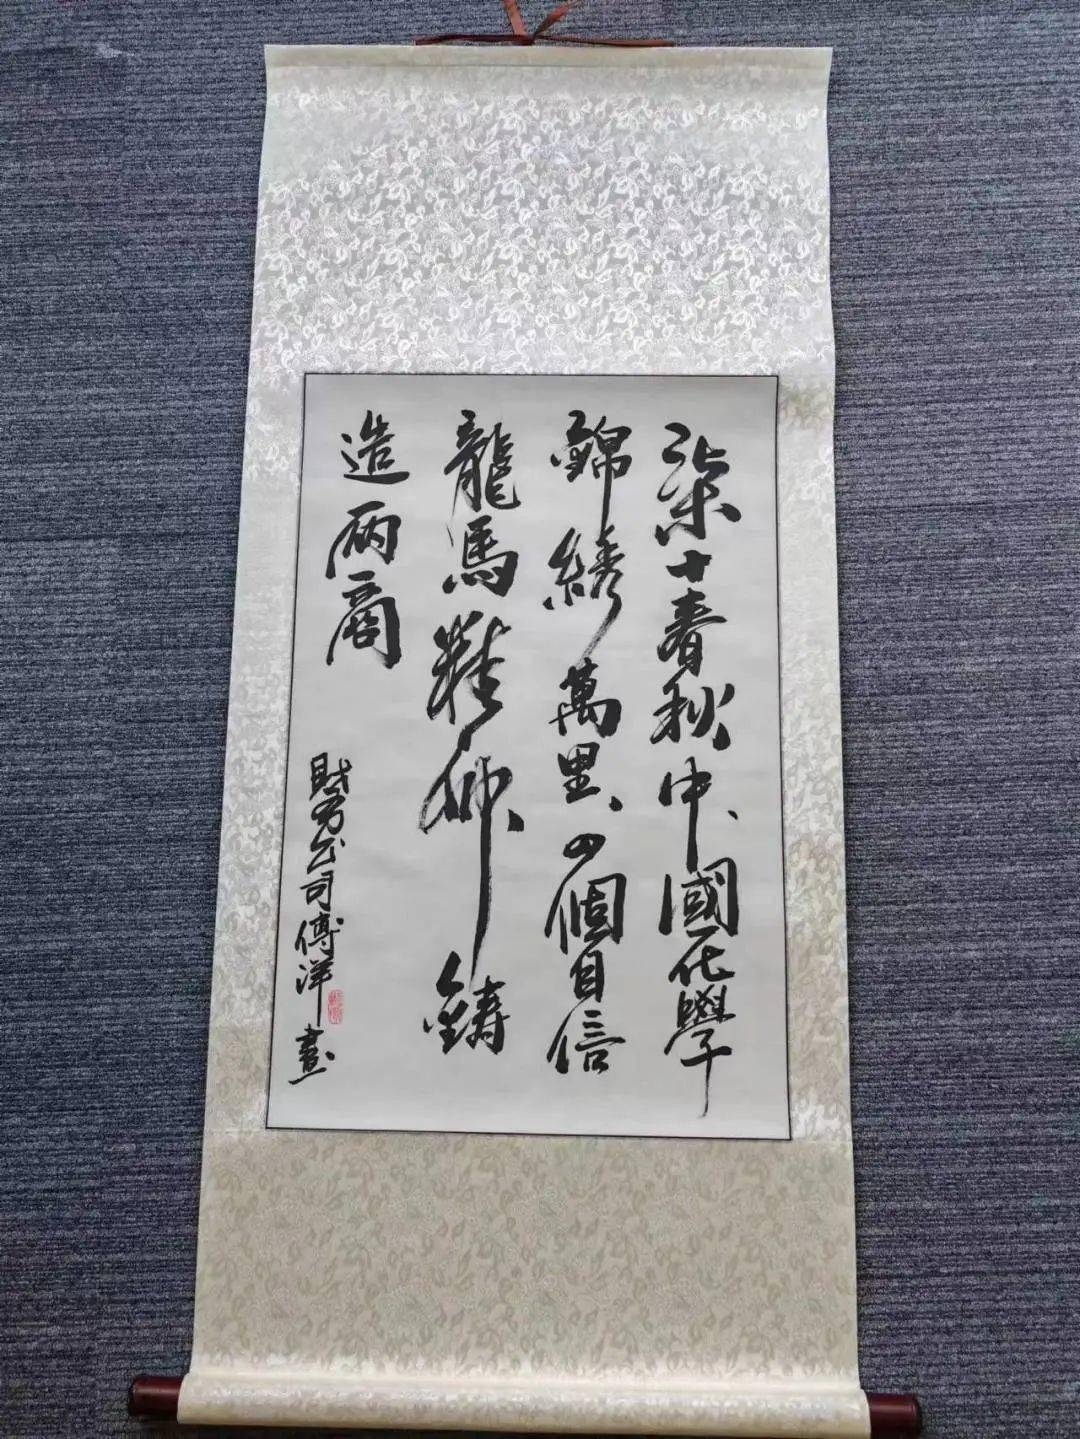 柒十春秋中國化學
錦綉萬里四個自信
龍馬精神鑄
造兩商
財务公司傅洋書